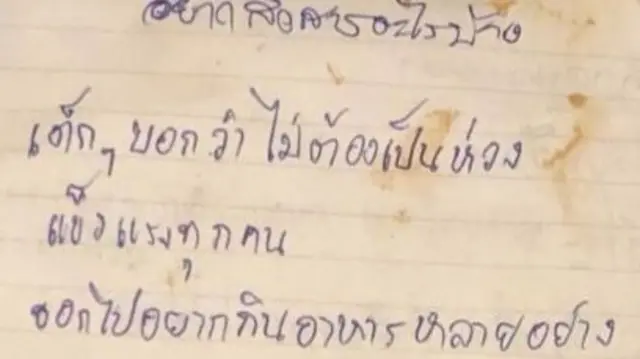 อยากสื่อสารอะไรบ้าง
เด็กๆ บอกว่า ไม่ต้องเป็นห่วง
แข็งแรงทุกคน
ออกไปอยากกินอาหารหลายอย่าง